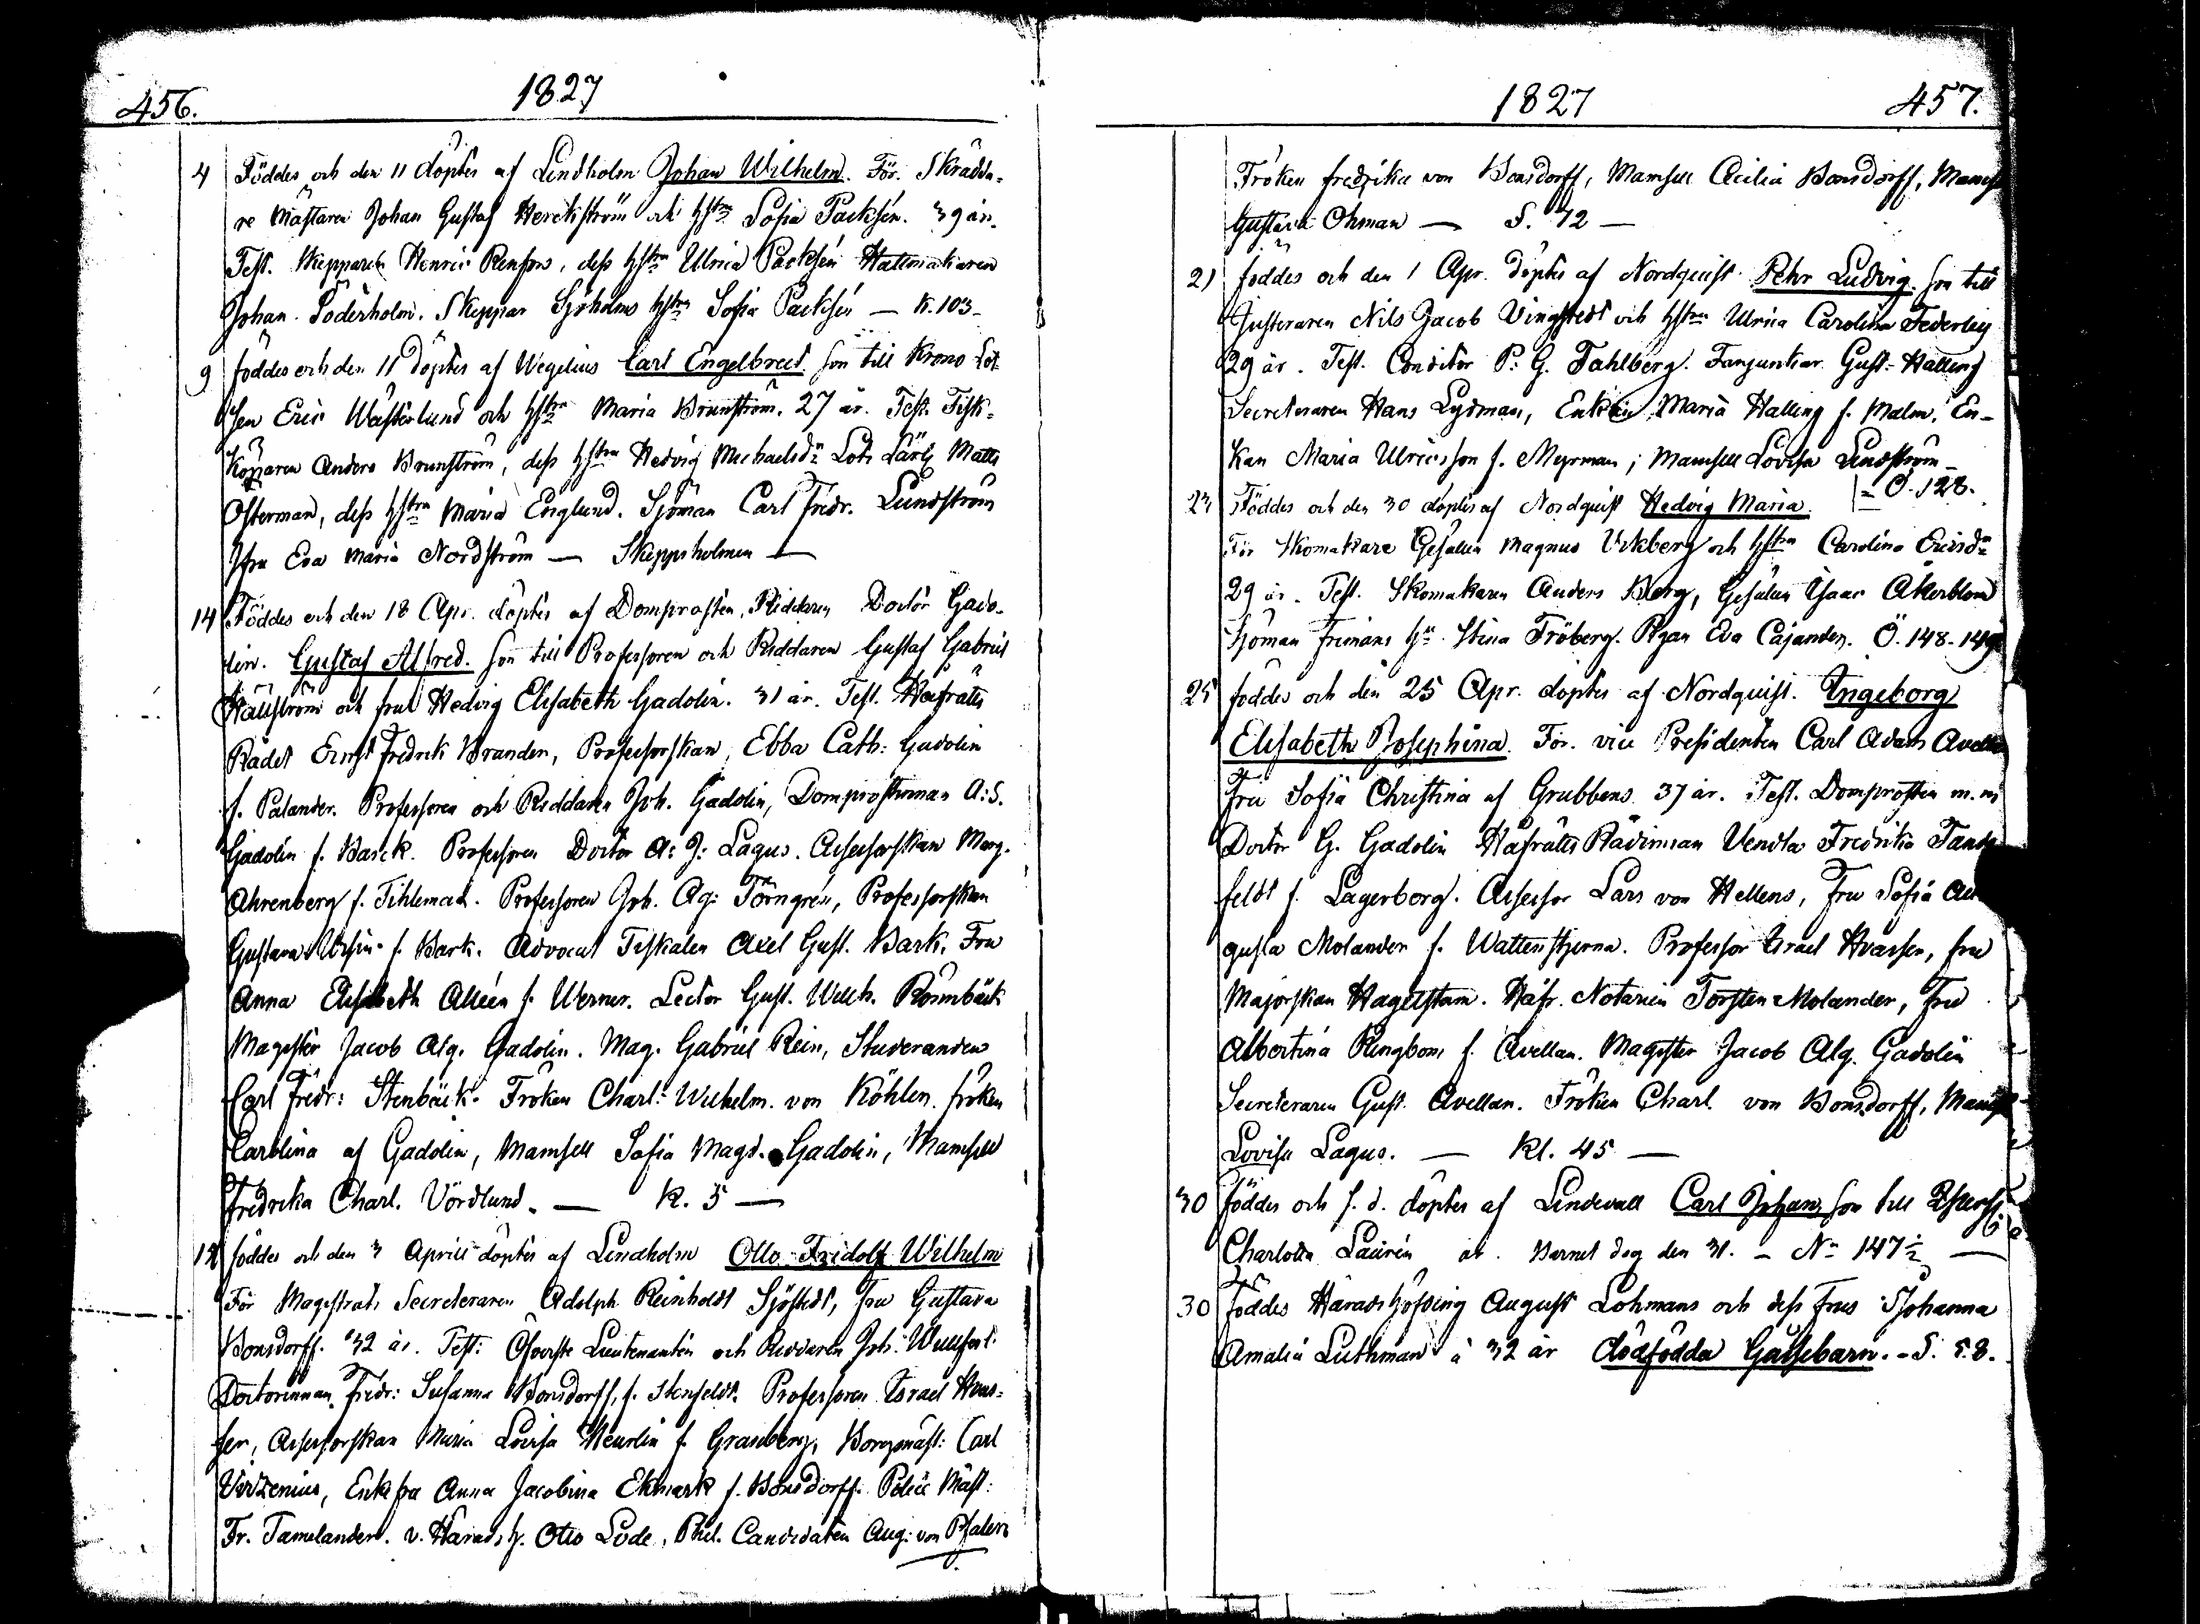 456.
1827
4 Föddes och den 11 döptes af Lindholm Johan Wilhelm. För. Skrädda-
re Mästaren Johan Gustaf Herckström och hstru Sofia Packsén. 39 år.
Test. Skepparen Henric Renfors, dess hstru Ulrica Packsén Hattmakaren
Johan Söderholm. Skeppar Sjöholms hstru Sofia Packsén — K. 103 —
9 föddes och den 11 döptes af Wegelius Carl Engelbrect. son till Krono Lot
sen Eric Westerlund och hstru Maria Brunström. 27 år. Test. Fisk-
köparen Anders Brunström, dess hstru Hedvig Michaelsdr Lots Lärl. Matts
Österman, dess hstru Maria Englund. Sjöman Carl Fredr. Lundström
Jfru Eva Maria Nordström — Skeppsholmen —
14 Föddes och den 18 Apr. döptes af Domprosten, Riddaren Doctor Gado-
lin. Gustaf Alfred. son till Professoren och Riddaren Gustaf Gabriel
Hällström och fru Hedvig Elisabeth Gadolin. 31 år. Test. Hofrätts
Rådet Ernst Fredrik Brander, Professorskan, Ebba Cath: Gadolin
f. Palander. Professoren och Riddaren Joh. Gadolin, Domprostinnan A: S.
Gadolin f. Barck. Professoren Doctor A: J: Lagus. Assessorskan Marg.
Ahrenberg f. Tihleman. Professoren Joh. Ag: Törngrén, Professorskan
Gustava Ursin f. Bark. Advocat Fiskalen Axel Gust. Bark. Fru
Anna Elisabeth Alléen f. Werner. Lector Gust. Wilh. Rönnbäck
Magister Jacob Alg. Gadolin. Mag. Gabriel Rein, Studeranden
Carl Fredr: Stenbäck. Fröken Charl: Wilhelm. von Köhlen. fröken
Carolina af Gadolin, Mamsell Sofia Magd. Gadolin, Mamsell
Fredrika Charl. Vördlund. — K. 5 —
föddes och den 3 Aprill döptes af Lindholm Otto Fridolf Wilhelm
För Magistrats Secreteraren Adolph Reinholdt Sjöstedt, fru Gustava
Bonsdorff. 32 år. Test: Öfverste Lieutenanten och Riddaren Joh.
Doctorinnan Fredr: Susanna Bonsdorff, f. Stenfeldt. Professoren Israel Hvas-
ser, Assessorskan Maria Lovisa Heurlin f. Granberg, Borgmäst: Carl
Virzenius, Enkefru Anna Jacobina Ekmark f. Bonsdorff. Police Mäst:
Fr. Tamelander. v. Häradsh. Otto Lode, Phil. Candidaten Aug: von Pfaler
1827
457.
Fröken fredrika von Bonsdorff, Mamsell Cecilia Bonsdorff, Mams
Gustava Öhman — S. 72 —
21 föddes och den 1 Apr. döptes af Nordquist Pehr Ludvig. son till
Justeraren Nils Jacob Vingstedt och hstru Ulrica Carolina Federley
29 år. Test. Conditor P: G. Fahlberg. Fanjunkar Gust. Halling
Secreteraren Hans Lydman, Enkan Maria Halling f. Malm. En-
kan Maria Ulricsson f. Meyrman; Mamsell Lovisa Lindström —
= Ö. 128.
23 Föddes och den 30 döptes af Nordquist Hedvig Maria.
För Skomakare Gesällen Magnus Vikberg och hstru Carolina Ericsdr
29 år. Test. Skomakaren Anders Berg, Gesällen Isaac Åkerblom
Sjöman Frimans hu Stina Fröberg. Pigan Eva Cajander. Ö. 148. 149
25 föddes och den 25 Apr. döptes af Nordquist. Ingeborg
Elisabeth Josephina. För. vice Presidenten Carl Adam Avellan
Fru Sofia Christina af Grubbens 37 år. Test. Domprosten m. m.
Doctor G. Gadolin Håfrätts Rådinnan Vendla Fredrika Tande
feldt f. Lagerborg. Assessor Lars von Hellens, Fru Sofia Au
gusta Molander f. Wattenstjerna. Professor Israel Hvasser, fru
Majorskan Hagelstam. Håfr. Notarien Torsten Molander, Fru
Albertina Ringbom f. Avellan. Magister Jacob Alg. Gadolin
Secreteraren Gust. Avellan. Fröken Charl. von Bonsdorff, Mams
Lovisa Lagus. — Kl. 45 —
30 föddes och s. d. döptes af Lindevall Carl Johan, son till
Charlotta Laurén år. Barnet dog den 31. — No 147½ —
30 föddes Häradshöfding August Lohmans och dess Frus Johanna
Amalia Luthman à 32 år dödfödda Gossebarn. – S. 58.